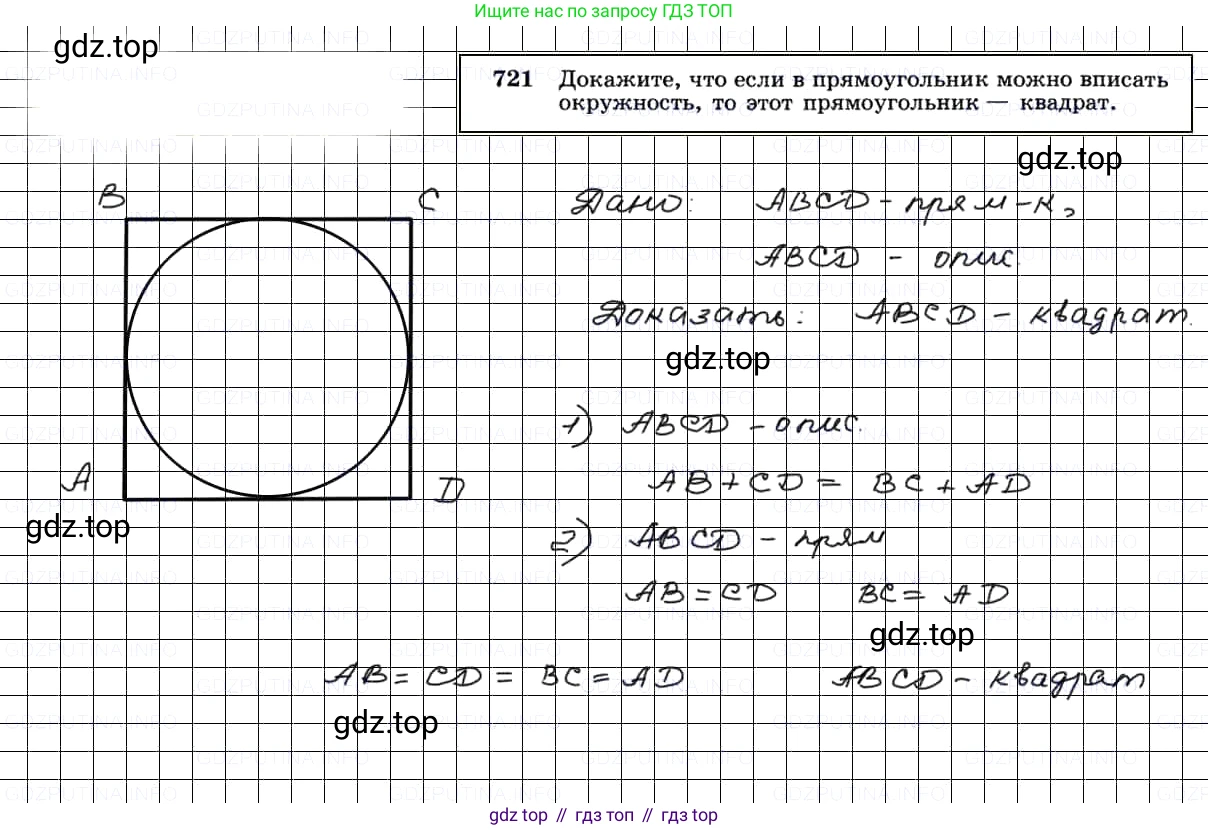 Ищите нас по запросу ГДЗ ТОП
gdz.top
721 Докажите, что если в прямоугольник можно вписать
окружность, то этот прямоугольник — квадрат.
gdz.top
B C
Дано: ABCD - прям-к,
ABCD - опис.
Доказать: ABCD - квадрат.
gdz.top
1) ABCD - опис.
A D
AB + CD = BC + AD
gdz.top
2) ABCD - прям
AB = CD BC = AD
gdz.top
AB = CD = BC = AD ABCD - квадрат
gdz.top
gdz top // гдз топ // гдз top